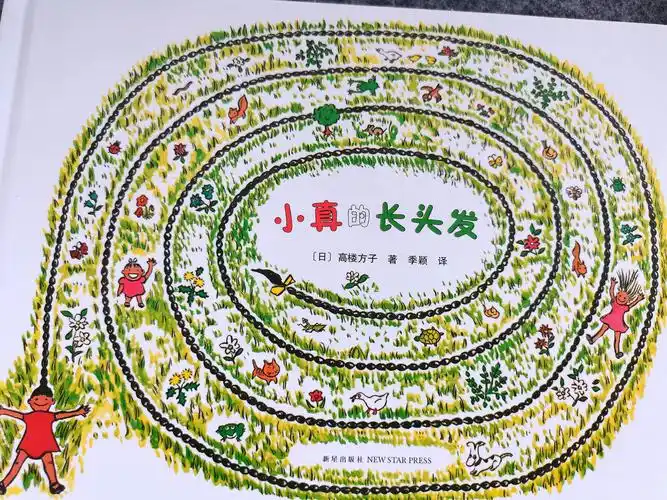 小真的长头发
〔日〕高楼方子 著 季颖 译
新星出版社 NEW STAR PRESS